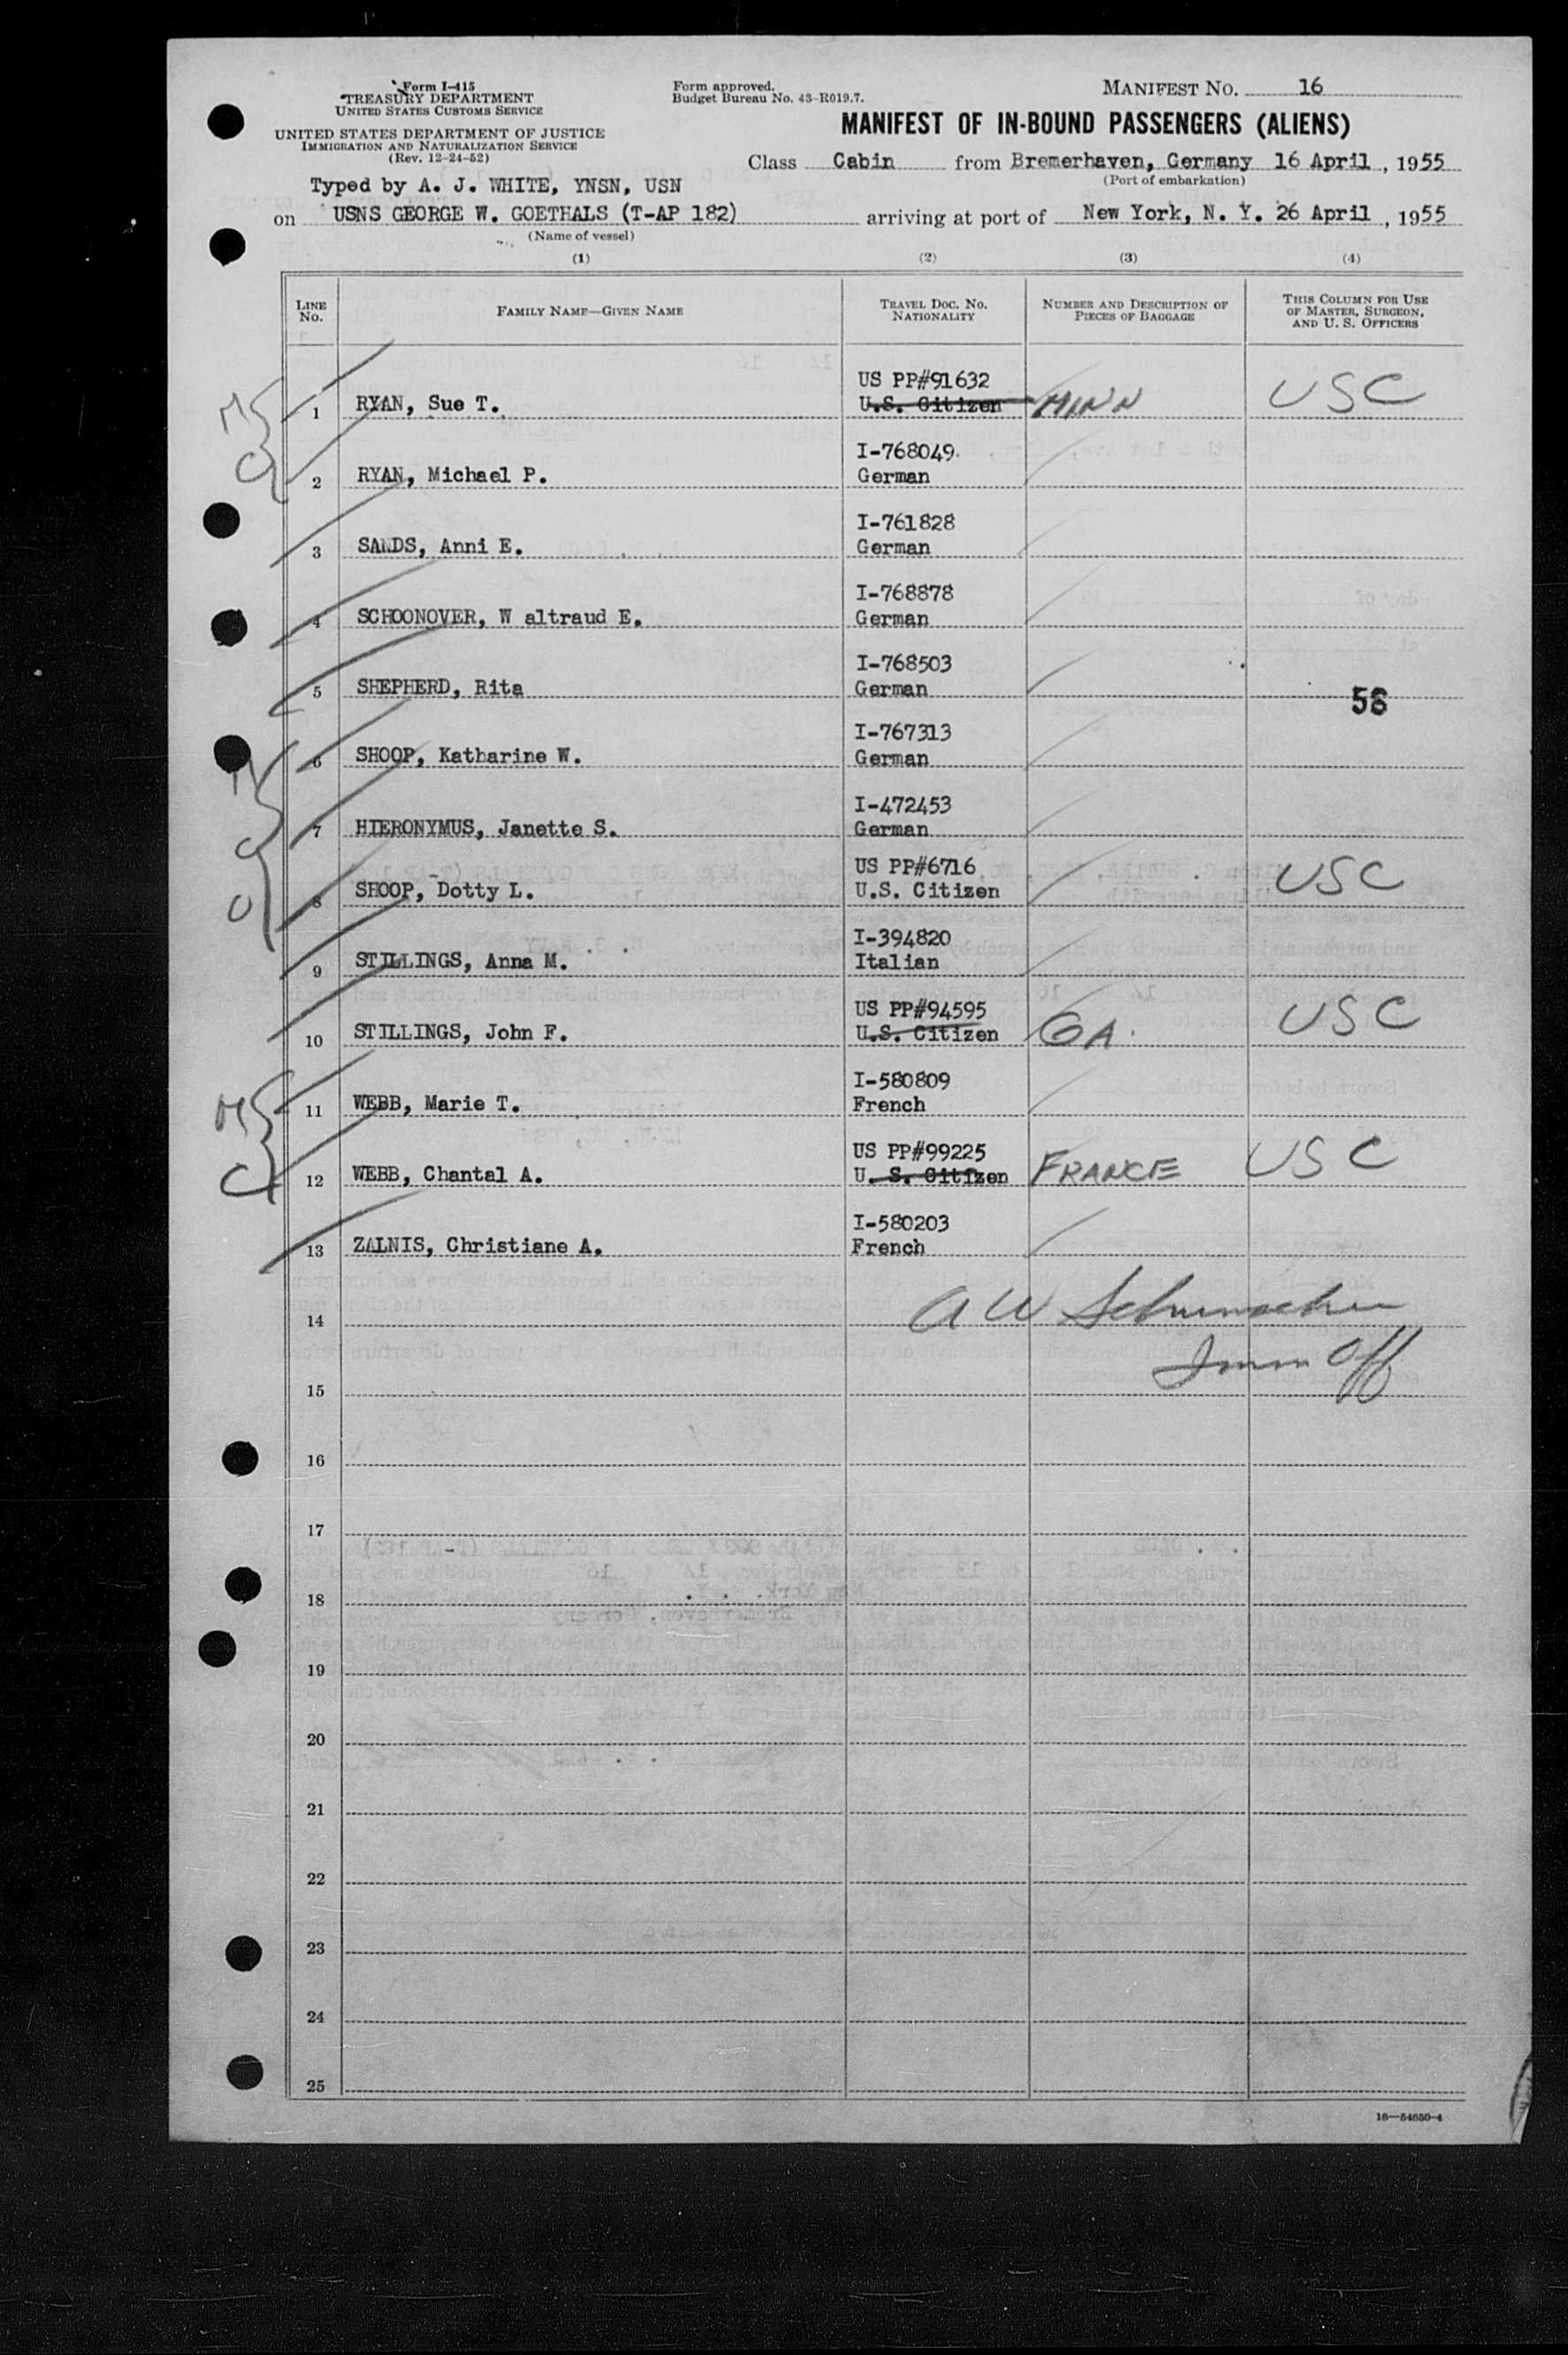 Form I-415
TREASURY DEPARTMENT
UNITED STATES CUSTOMS SERVICE
UNITED STATES DEPARTMENT OF JUSTICE
IMMIGRATION AND NATURALIZATION SERVICE
(Rev. 12-24-52)
Form approved.
Budget Bureau No. 43-R019.7.
MANIFEST NO. 16
MANIFEST OF IN-BOUND PASSENGERS (ALIENS)
Class Cabin from Bremerhaven, Germany 16 April, 1955
(Port of embarkation)
Typed by A. J. WHITE, YNSN, USN
on USNS GEORGE W. GOETHALS (T-AP 182) arriving at port of New York, N. Y. 26 April, 1955
(Name of vessel)
(1) (2) (3) (4)
LINE NO. FAMILY NAME—GIVEN NAME TRAVEL DOC. NO. NATIONALITY NUMBER AND DESCRIPTION OF PIECES OF BAGGAGE THIS COLUMN FOR USE OF MASTER, SURGEON, AND U. S. OFFICERS
US PP#91632
M 1 RYAN, Sue T. U.S. Citizen MINN USC
I-768049
C 2 RYAN, Michael P. German
I-761828
3 SANDS, Anni E. German
I-768878
4 SCHOONOVER, W altraud E. German
I-768503
5 SHEPHERD, Rita German
58
I-767313
M 6 SHOOP, Katharine W. German
I-472453
C 7 HIERONYMUS, Janette S. German
US PP#6716
C 8 SHOOP, Dotty L. U.S. Citizen USC
I-394820
9 STILLINGS, Anna M. Italian
US PP#94595
10 STILLINGS, John F. U.S. Citizen GA. USC
I-580809
M 11 WEBB, Marie T. French
US PP#99225
C 12 WEBB, Chantal A. U. S. Citizen FRANCE USC
I-580203
13 ZALNIS, Christiane A. French
14 A W Schumacher
Imm Off
15
16
17
18
19
20
21
22
23
24
25
16—54650-4